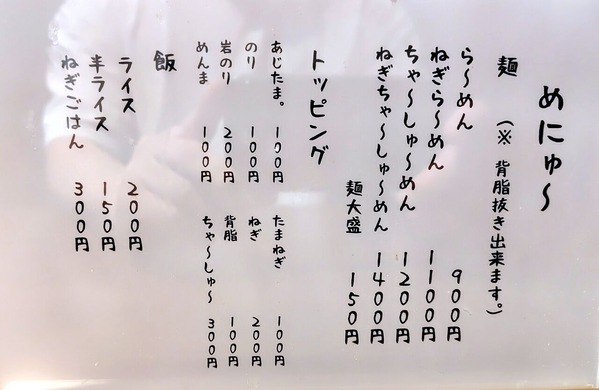 めにゅ〜
麺 (※ 背脂抜き出来ます。)
ら〜めん 900円
ねぎら〜めん 1100円
ちゃ〜しゅ〜めん 1200円
ねぎちゃ〜しゅ〜めん 1400円
麺大盛 150円
トッピング
あじたま。 100円
のり 100円
岩のり 200円
めんま 100円
たまねぎ 100円
ねぎ 200円
背脂 100円
ちゃ〜しゅ〜 300円
飯
ライス 200円
半ライス 150円
ねぎごはん 300円